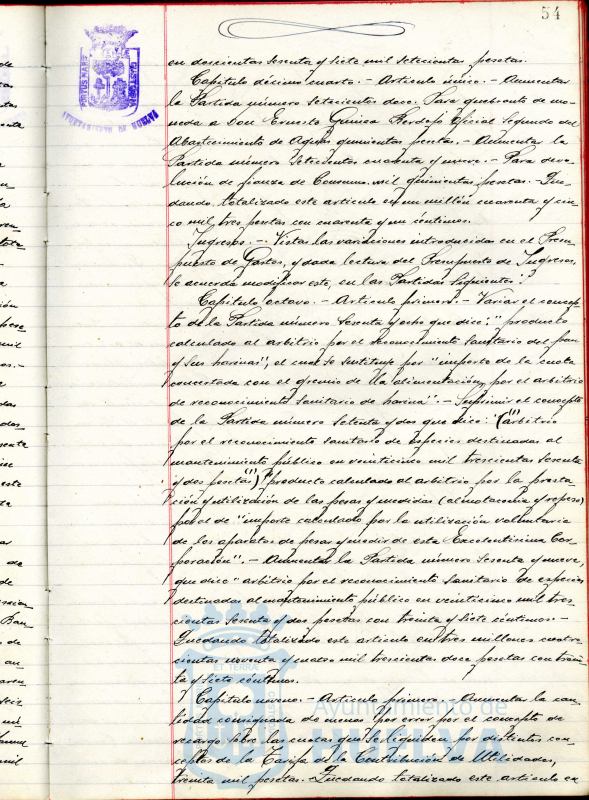 54
en doscientas sesenta y siete mil setecientas pesetas.
Capitulo décimo cuarto.- Articulo único.- Aumentar
la Partida número setecientos doce. Para quebranto de mo-
neda a Don Ernesto Oficial Segundo del
Abastecimiento de Aguas quinientas pesetas.- Aumentar la
Partida número setecientos cuarenta y nueve.- Para devo-
lución de fianza de Consumos mil quinientas pesetas.- Que-
dando, totalizado este artículo en un millón cuarenta y cin-
co mil tres pesetas con cuarenta y un céntimos.
Ingresos.-. Vistas las variaciones introducidas en el Presu-
puesto de Gastos, y dada lectura del Presupuesto de Ingresos,
se acuerda modificar este, en las Partidas siguientes:
Capitulo octavo.- Articulo primero.- Variar el concep-
to de la Partida número sesenta y ocho que dice; "producto
calculado al arbitrio por el reconocimiento sanitario del pan
y sus harinas", el cual se sustituye por "importe de la cuota
concertada con el gremio de la alimentación, por el arbitrio
de reconocimiento sanitario de harina".- Suprimir el concepto
de la Partida número setenta y dos que dice: "(arbitrio
por el reconocimiento sanitario de especies destinadas al
mantenimiento público en veinticinco mil trescientas sesenta
y dos pesetas) "producto calculado al arbitrio por la presta-
ción y utilización de las pesas y medidas (almotacenía y repeso)
por el de "importe calculado por la utilización voluntaria
de los aparatos de pesar y medir de esta Excelentísima Cor-
poración".- Aumentar la Partida número sesenta y nueve,
que dice "arbitrio por el reconocimiento sanitario de especies
destinadas al mantenimiento público en veinticinco mil tres-
cientas sesenta y dos pesetas con treinta y siete céntimos.-
Quedando totalizado este artículo en tres millones cuatro-
cientas noventa y cuatro mil trescientas doce pesetas con trein-
ta y siete céntimos.
Capitulo noveno.- Articulo primero.- Aumentar la can-
tidad consignada de menos por error por el concepto de
recargo sobre las cuotas que se liquiden por distintos con-
ceptos de la Tarifa de la Contribución de Utilidades,
treinta mil pesetas.- Quedando totalizado este artículo en
AYUNTAMIENTO DE HUELVA
PORTUS MARIS
ET TERRAE
Ayuntamiento de
HUELVA